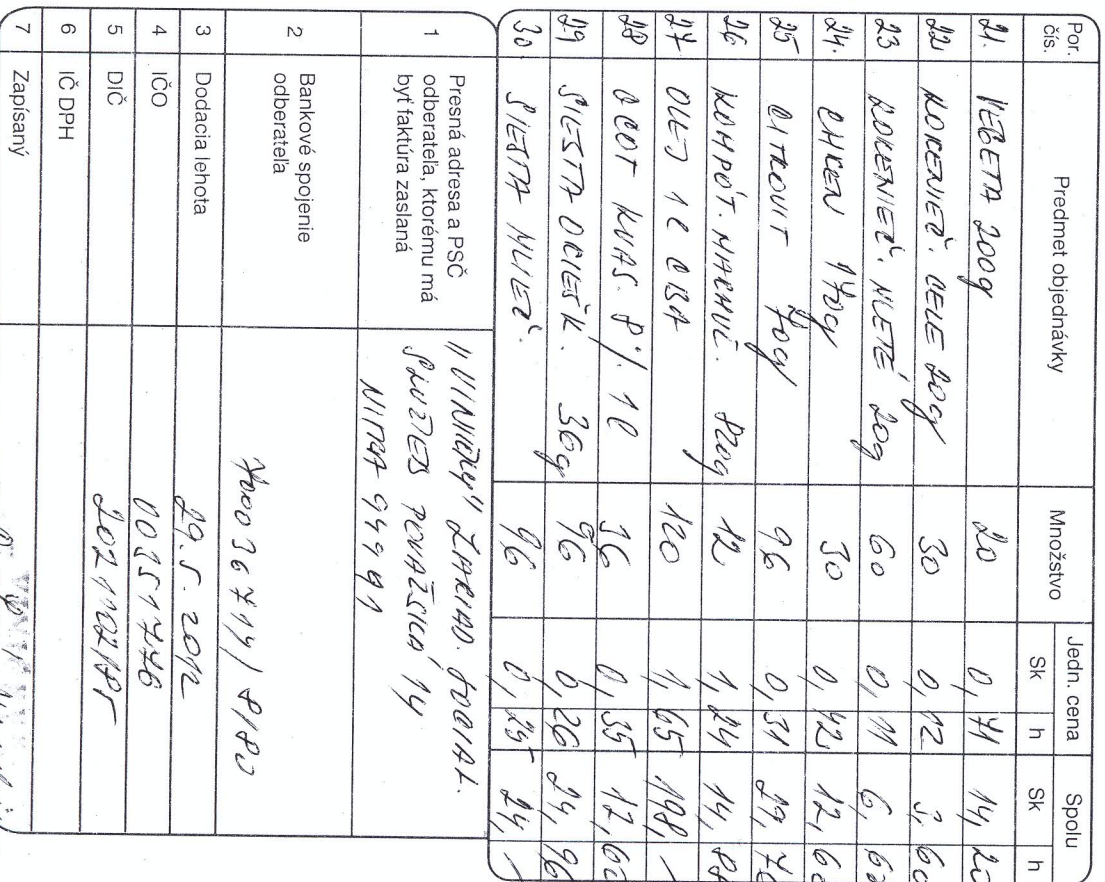 Por. čís. Predmet objednávky Množstvo Jedn. cena Spolu
Sk h Sk h
21. VEGETA 200g 20 0,71 14,20
22 KORENIEČ. CELE 20g 30 0,12 3,60
23 KORENIEČ. MLETÉ 20g 60 0,11 6,60
24. CHREN 170g 30 0,42 12,60
25 CITROVIT 70g 96 0,31 29,76
26 KOMPÓT. MARHUĽ. 820g 12 1,24 14,88
27 OLEJ 1L CBA 120 1,65 198,-
28 OCOT KVAS. 8% 1l 36 0,35 12,60
29 SIESTA OCIEŠK. 36g 96 0,26 24,96
30 SIESTA MLIEČ. 96 0,25 24,-
1 Presná adresa a PSČ
odberateľa, ktorému má
byť faktúra zaslaná
"VINIČKY" ZARIAD. SOCIAL.
SLUŽIEB POVAŽSKÁ 14
NITRA 949 91
2 Bankové spojenie
odberateľa
7000 36 7 19/ 8180
3 Dodacia lehota 29.5. 2012
4 IČO 00351776
5 DIČ 2021102185
6 IČ DPH
7 Zapísaný